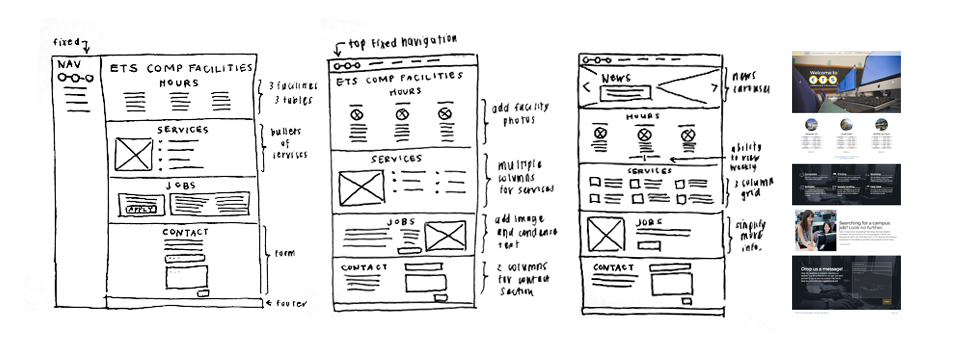 fixed
NAV
ETS COMP FACILITIES
HOURS
3 facilities
3 tables
SERVICES
bullets
of
services
JOBS
APPLY
CONTACT
form
footer
top fixed navigation
ETS COMP FACILITIES
HOURS
add facility
photos
SERVICES
multiple
columns
for services
JOBS
add image
and condense
text
CONTACT
2 columns
for contact
section
NEWS
news
carousel
HOURS
ability
to view
weekly
SERVICES
3 column
grid
JOBS
simplify
more
info.
CONTACT
Welcome to
E T S
Searching for a campus
job? Look no further.
Drop us a message!